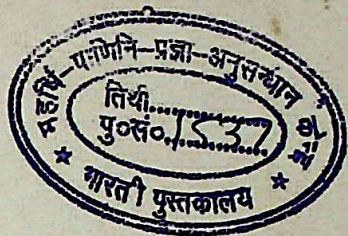 महर्षि-पाणिनि-प्रज्ञा-अनुसन्धान
तिथी..............
पु०सं०.1537
★ भारती पुस्तकालय ★